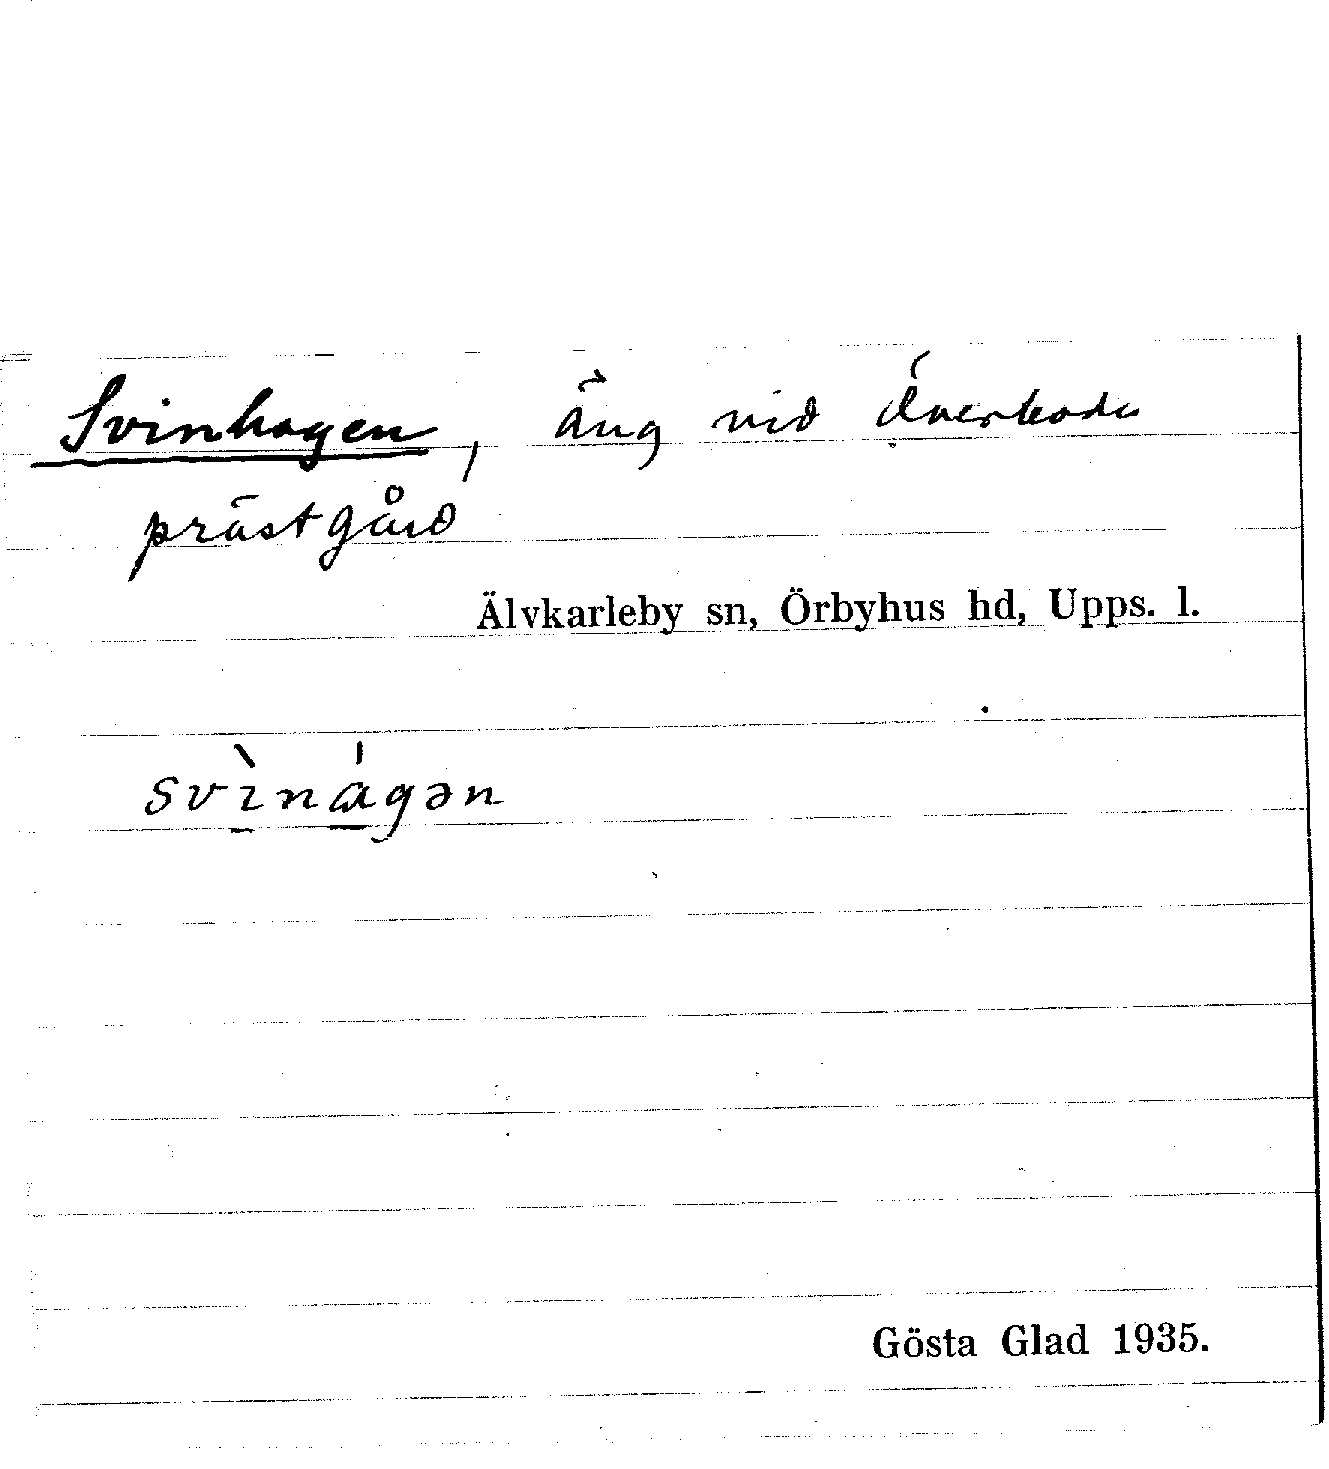 Svinhagen, äng vid Överboda
prästgård
Älvkarleby sn, Örbyhus hd, Upps. l.
svìnágən
Gösta Glad 1935.